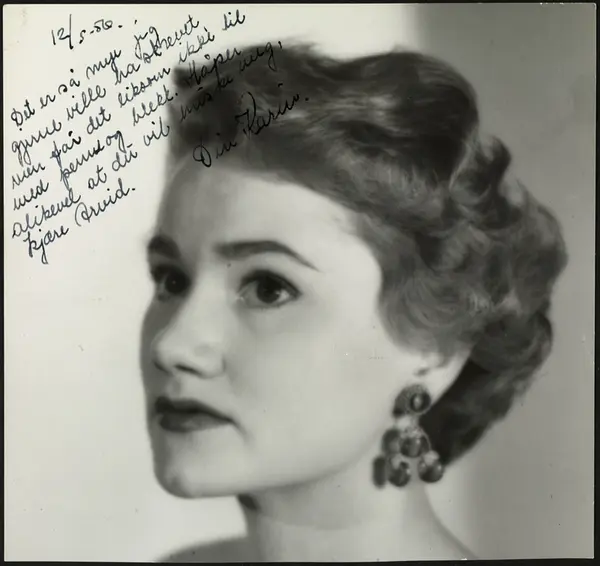 12/5-56.
Det er så mye jeg
gjerne ville ha skrevet
men får det liksom ikke til
med penn og blekk. Håper
alikevel at du vil huske meg,
kjære Arvid.
Din Karin.